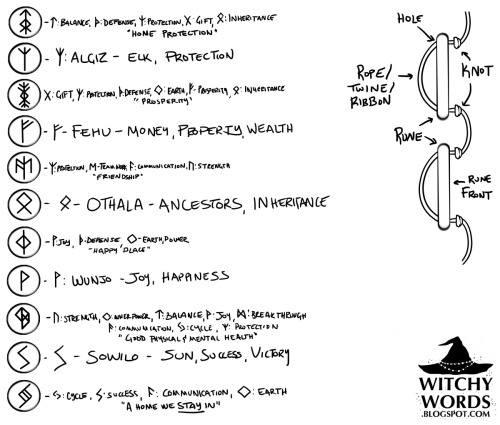 - ᛏ: BALANCE, ᚦ: DEFENSE, ᛉ: PROTECTION, X: GIFT, ᛟ: INHERITANCE
"HOME PROTECTION"
- ᛉ: ALGIZ - ELK, PROTECTION
X: GIFT, ᛉ: PROTECTION, ᚦ: DEFENSE, ◇: EARTH, ᚠ: PROSPERITY, ᛟ: INHERITANCE
"PROSPERITY"
- ᚠ - FEHU - MONEY, PROPERTY, WEALTH
- ᛉ: PROTECTION, M-TEAMWORK, ᚨ: COMMUNICATION, ᚢ: STRENGTH
"FRIENDSHIP"
- ᛟ - OTHALA - ANCESTORS, INHERITANCE
- ᚹ: JOY, ᚦ: DEFENSE ◇ - EARTH, POWER
"HAPPY PLACE"
- ᚹ: WUNJO - JOY, HAPINESS
- ᚢ: STRENGTH, ◇: INNER POWER, ᛏ: BALANCE, ᚹ: JOY, ᛞ: BREAKTHROUGH
ᚨ: COMMUNICATION, ᛃ: CYCLE, ᛉ: PROTECTION
"GOOD PHYSICAL & MENTAL HEALTH"
- ᛊ - SOWILO - SUN, SUCCESS, VICTORY
- ᛃ: CYCLE, ᛊ: SUCCESS, ᚨ: COMMUNICATION, ◇: EARTH
"A HOME WE STAY IN"
HOLE
KNOT
ROPE/
TWINE/
RIBBON
RUNE
RUNE
FRONT
WITCHY
WORDS
.BLOGSPOT.COM